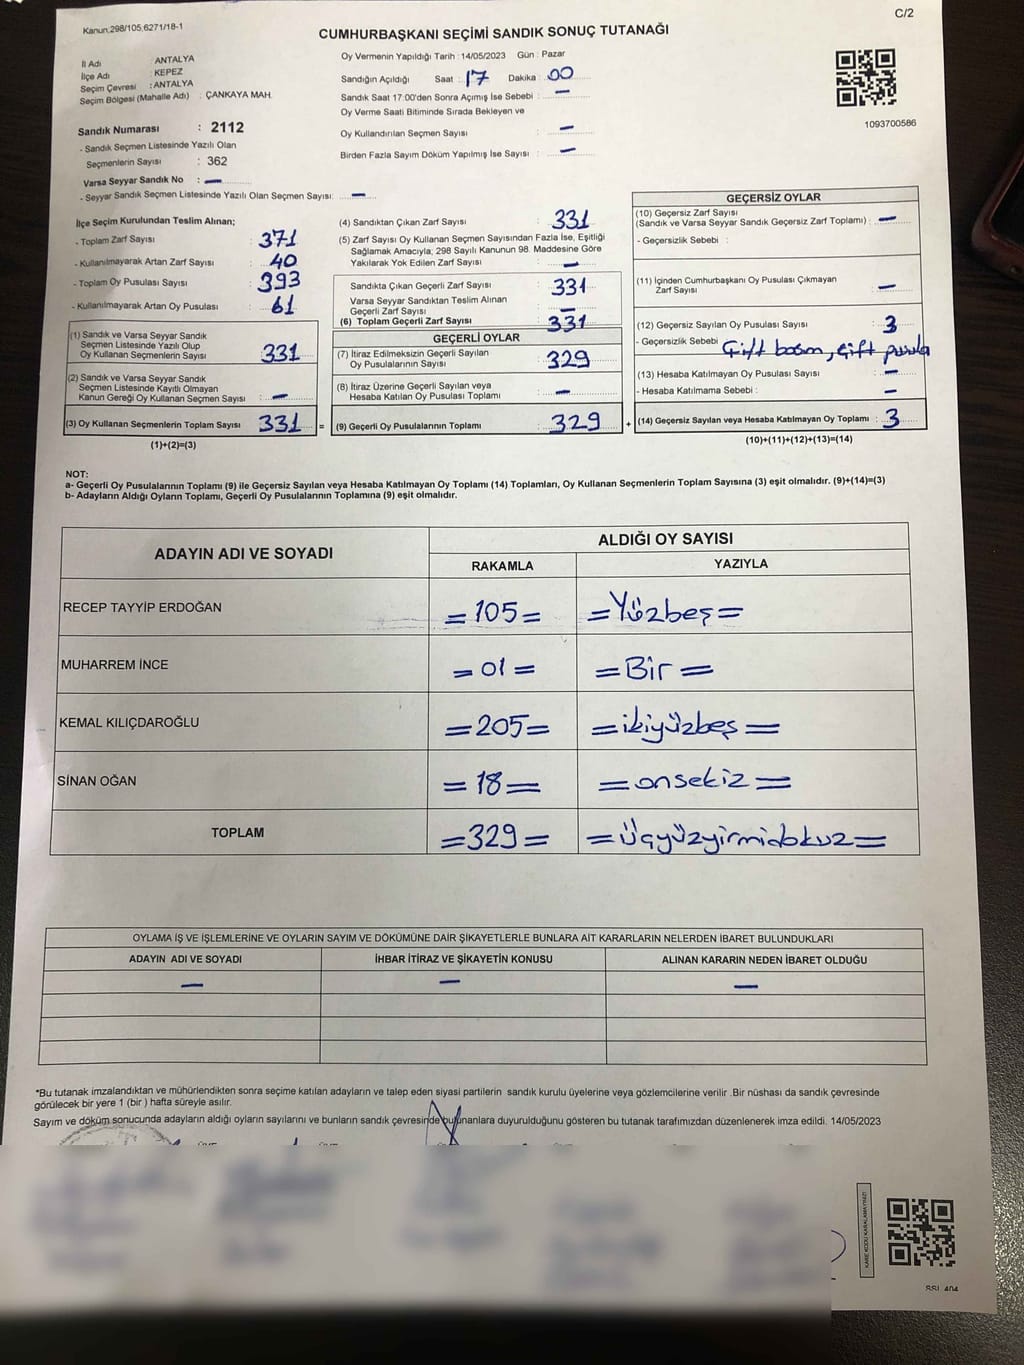 Kanun:298/105;6271/18-1
C/2
CUMHURBAŞKANI SEÇİMİ SANDIK SONUÇ TUTANAĞI
İl Adı ANTALYA
İlçe Adı : KEPEZ
Seçim Çevresi : ANTALYA
Seçim Bölgesi (Mahalle Adı) : ÇANKAYA MAH.
Sandık Numarası : 2112
- Sandık Seçmen Listesinde Yazılı Olan
Seçmenlerin Sayısı : 362
Varsa Seyyar Sandık No : —
- Seyyar Sandık Seçmen Listesinde Yazılı Olan Seçmen Sayısı: —
Oy Vermenin Yapıldığı Tarih : 14/05/2023 Gün : Pazar
Sandığın Açıldığı Saat : 17 Dakika : 00
Sandık Saat 17:00'den Sonra Açımış İse Sebebi : —
Oy Verme Saati Bitiminde Sırada Bekleyen ve
Oy Kullandırılan Seçmen Sayısı : —
Birden Fazla Sayım Döküm Yapılmış İse Sayısı : —
1093700586
İlçe Seçim Kurulundan Teslim Alınan;
- Toplam Zarf Sayısı : 371
- Kullanılmayarak Artan Zarf Sayısı : 40
- Toplam Oy Pusulası Sayısı : 393
- Kullanılmayarak Artan Oy Pusulası : 61
(1) Sandık ve Varsa Seyyar Sandık
Seçmen Listesinde Yazılı Olup
Oy Kullanan Seçmenlerin Sayısı : 331
(2) Sandık ve Varsa Seyyar Sandık
Seçmen Listesinde Kayıtlı Olmayan
Kanun Gereği Oy Kullanan Seçmen Sayısı : —
(3) Oy Kullanan Seçmenlerin Toplam Sayısı : 331 =
(1)+(2)=(3)
(4) Sandıktan Çıkan Zarf Sayısı : 331
(5) Zarf Sayısı Oy Kullanan Seçmen Sayısından Fazla İse, Eşitliği
Sağlamak Amacıyla; 298 Sayılı Kanunun 98. Maddesine Göre
Yakılarak Yok Edilen Zarf Sayısı : —
Sandıkta Çıkan Geçerli Zarf Sayısı : 331
Varsa Seyyar Sandıktan Teslim Alınan
Geçerli Zarf Sayısı : —
(6) Toplam Geçerli Zarf Sayısı : 331
GEÇERLİ OYLAR
(7) İtiraz Edilmeksizin Geçerli Sayılan
Oy Pusulalarının Sayısı : 329
(8) İtiraz Üzerine Geçerli Sayılan veya
Hesaba Katılan Oy Pusulası Toplamı : —
(9) Geçerli Oy Pusulalarının Toplamı : 329 +
GEÇERSİZ OYLAR
(10) Geçersiz Zarf Sayısı
(Sandık ve Varsa Seyyar Sandık Geçersiz Zarf Toplamı) : —
- Geçersizlik Sebebi :
(11) İçinden Cumhurbaşkanı Oy Pusulası Çıkmayan
Zarf Sayısı : —
(12) Geçersiz Sayılan Oy Pusulası Sayısı : 3
- Geçersizlik Sebebi Çift basım, Çift pusula
(13) Hesaba Katılmayan Oy Pusulası Sayısı : —
- Hesaba Katılmama Sebebi : —
(14) Geçersiz Sayılan veya Hesaba Katılmayan Oy Toplamı : 3
(10)+(11)+(12)+(13)=(14)
NOT:
a- Geçerli Oy Pusulalarının Toplamı (9) ile Geçersiz Sayılan veya Hesaba Katılmayan Oy Toplamı (14) Toplamları, Oy Kullanan Seçmenlerin Toplam Sayısına (3) eşit olmalıdır. (9)+(14)=(3)
b- Adayların Aldığı Oyların Toplamı, Geçerli Oy Pusulalarının Toplamına (9) eşit olmalıdır.
ADAYIN ADI VE SOYADI
ALDIĞI OY SAYISI
RAKAMLA YAZIYLA
RECEP TAYYİP ERDOĞAN =105= =Yüzbeş=
MUHARREM İNCE =01= =Bir=
KEMAL KILIÇDAROĞLU =205= =ikiyüzbeş=
SİNAN OĞAN =18= =onsekiz=
TOPLAM =329= =Üçyüzyirmidokuz=
OYLAMA İŞ VE İŞLEMLERİNE VE OYLARIN SAYIM VE DÖKÜMÜNE DAİR ŞİKAYETLERLE BUNLARA AİT KARARLARIN NELERDEN İBARET BULUNDUKLARI
ADAYIN ADI VE SOYADI İHBAR İTİRAZ VE ŞİKAYETİN KONUSU ALINAN KARARIN NEDEN İBARET OLDUĞU
— — —
*Bu tutanak imzalandıktan ve mühürlendikten sonra seçime katılan adayların ve talep eden siyasi partilerin sandık kurulu üyelerine veya gözlemcilerine verilir .Bir nüshası da sandık çevresinde
görülecek bir yere 1 (bir ) hafta süreyle asılır.
Sayım ve döküm sonucunda adayların aldığı oyların sayılarını ve bunların sandık çevresinde bulunanlara duyurulduğunu gösteren bu tutanak tarafımızdan düzenlenerek imza edildi. 14/05/2023
KARE KODU KARALAMAYINIZ!